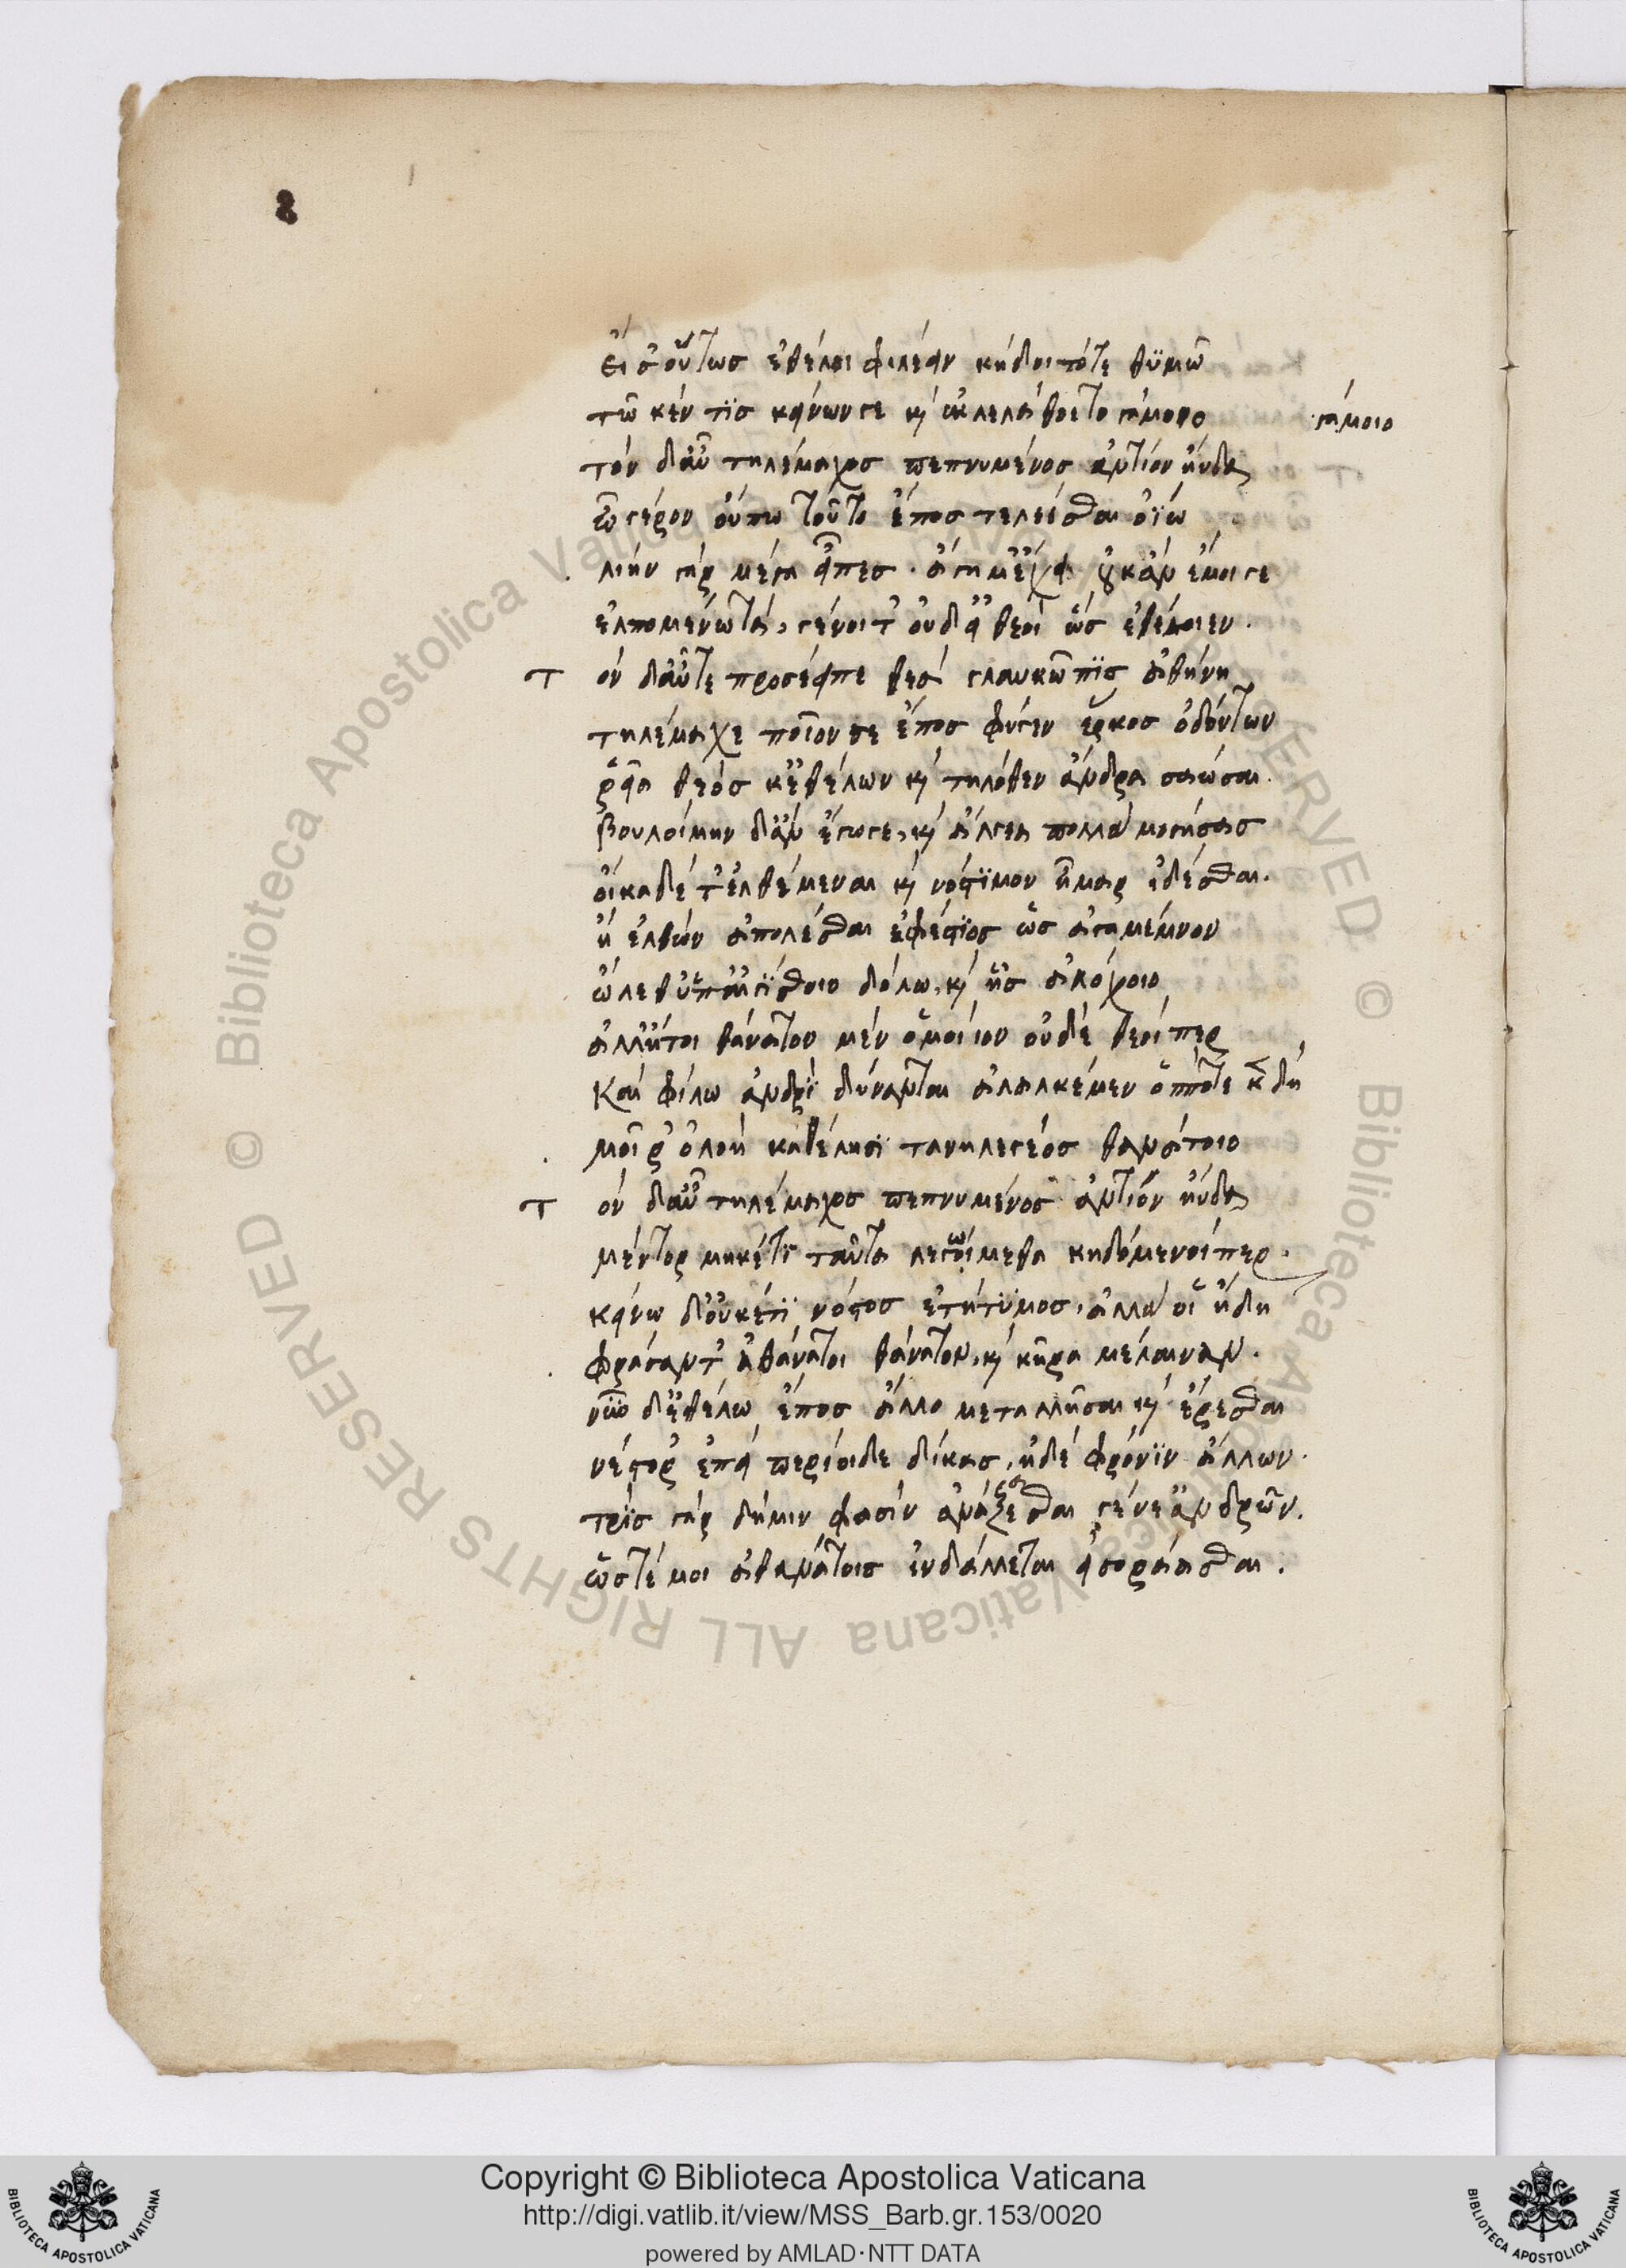 εἴ σ' οὕτως ἐθέλοι φιλέειν κήδοιτό τε θϋμῶ
τῶ κέν τϊς κείνων γε κ' ἐκλελάθοιτο γάμοιο γάμοιο
τόν δ' αὖ τηλέμαχος πεπνυμένος ἀντίον ηὔδα
ὦ γέρον οὔπω τοῦτο ἔπος τελέεσθαι ὀΐω
λίην γάρ μέγα εἶπες· ἄγη μ' ἔχει· οὐκ ἄν ἔμοιγε
ἐλπομένω τά, γένοιτ' οὐδ' εἰ θεοί ὥς ἐθέλοιεν.
τ όν δ' αὖτε προσέειπε θεά γλαυκῶπϊς ἀθήνη
τηλέμαχε ποῖον σε ἔπος φύγεν ἕρκος ὀδόντων
ῥεῖα θεός κ' ἐθέλων κ' τηλόθεν ἄνδρα σαώσαι.
βουλοίμην δ' ἄν ἔγωγε, κ' ἄλγεα πολλά μογήσας
οἴκαδέ τ' ἐλθέμεναι κ' νόστϊμον ἦμαρ ἰδέσθαι.
ἤ ἐλθών ἀπολέσθαι ἐφέστϊος ὡς ἀγαμέμνον
ὤλεθ' ὑπ' αἰγΐσθοιο δόλω, κ' ἧς ἀλόχοιο
ἀλλ' ἤτοι θάνατον μέν ὁμοίϊον οὐδέ θεοί περ
καί φίλω ἀνδρϊ δύνανται ἀλαλκέμεν ὁππότε κ δή
μοῖρ' ὀλοή καθέλησϊ τανηλεγέος θανάτοιο
τ όν δ' αὖ τηλέμαχος πεπνυμένος ἀντίον ηὔδα
μέντορ μηκέτϊ ταῦτα λεγώμεθα κηδόμενοί περ.
κείνω δ' οὐκέτϊ νόστος ἐτήτϋμος, ἀλλά οἵ ἤδη
φράσαντ' ἀθάνατοι θάνατον, κ' κῆρα μέλαιναν.
νῦν δ' ἐθέλω ἔπος ἄλλο μεταλλῆσαι κ' ἔρεσθαι
νέστορ' ἐπεί περίοιδε δίκας, ἠδέ φρόνϊν ἄλλων.
τρίς γάρ δήμιν φασίν ἀνάξεσθαι γένε' ἀνδρῶν.
ὥστέ μοι ἀθανάτοις ἰνδάλλεται εἰσοράασθαι.
Copyright © Biblioteca Apostolica Vaticana
http://digi.vatlib.it/view/MSS_Barb.gr.153/0020
powered by AMLAD·NTT DATA